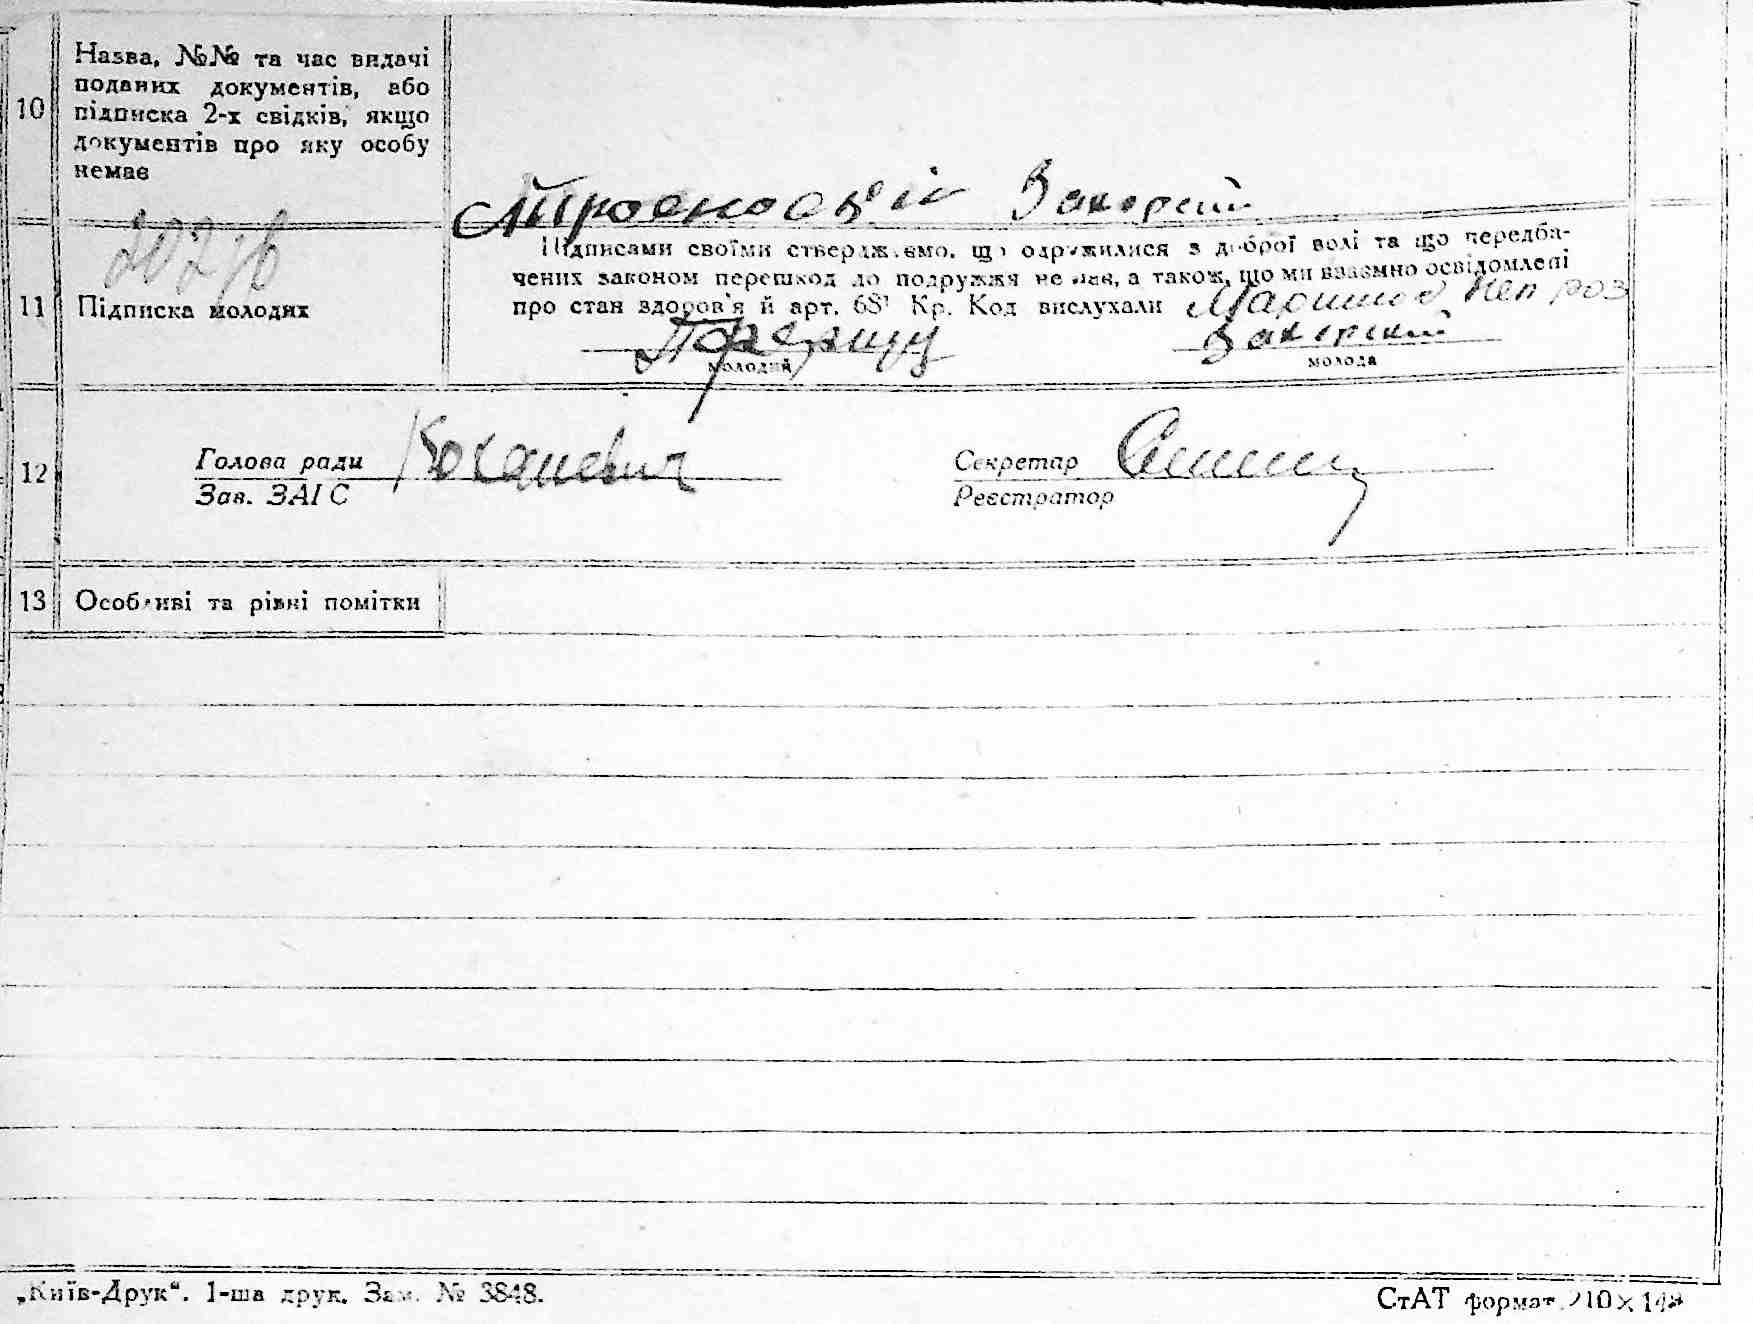 10
Назва, №№ та час видачі
поданих документів, або
підписка 2-х свідків, якщо
документів про яку особу
немає
Закорский
11
Підписка молодих
Підписами своїми стверджуємо, що одружилися з доброї волі та що передба-
чених законом перешкод до подружжя не має, а також, що ми взаємно освідомлені
про стан здоров'я й арт. 68¹ Кр. Код вислухали
Закорский
молодий
молода
12
Голова ради Коханевич
Зав. ЗАГС
Секретар
Реєстратор
13
Особливі та різні помітки
„Київ-Друк“. 1-ша друк. Зам. № 3848.
СтАТ формат 210×148